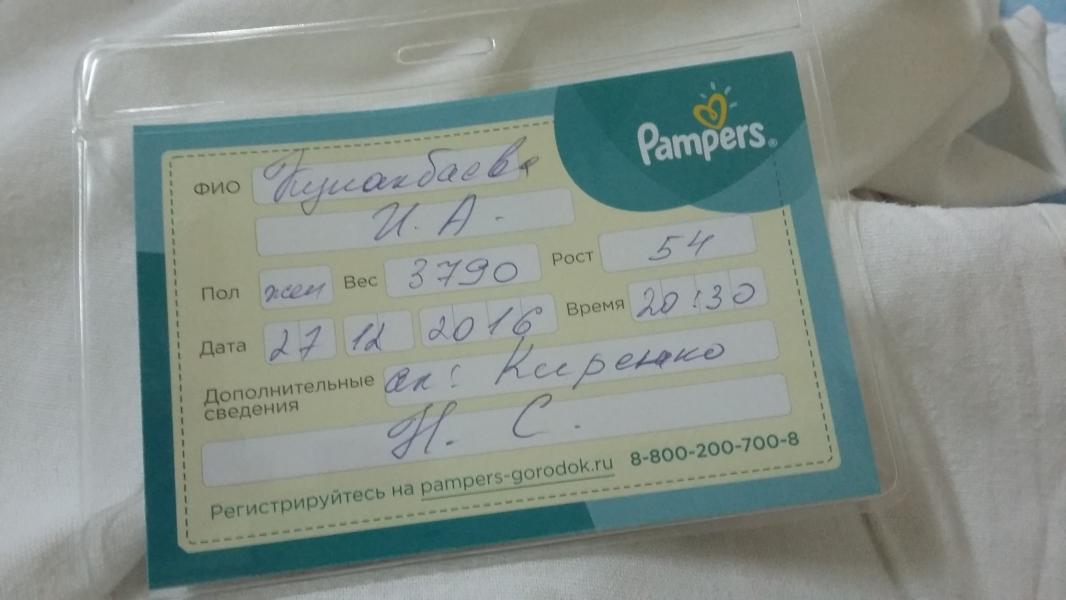 Pampers®
ФИО
И. А.
Пол жен Вес 3790 Рост 54
Дата 27 12 2016 Время 20:30
Дополнительные сведения ак: Киренко
Н. С.
Регистрируйтесь на pampers-gorodok.ru 8-800-200-700-8